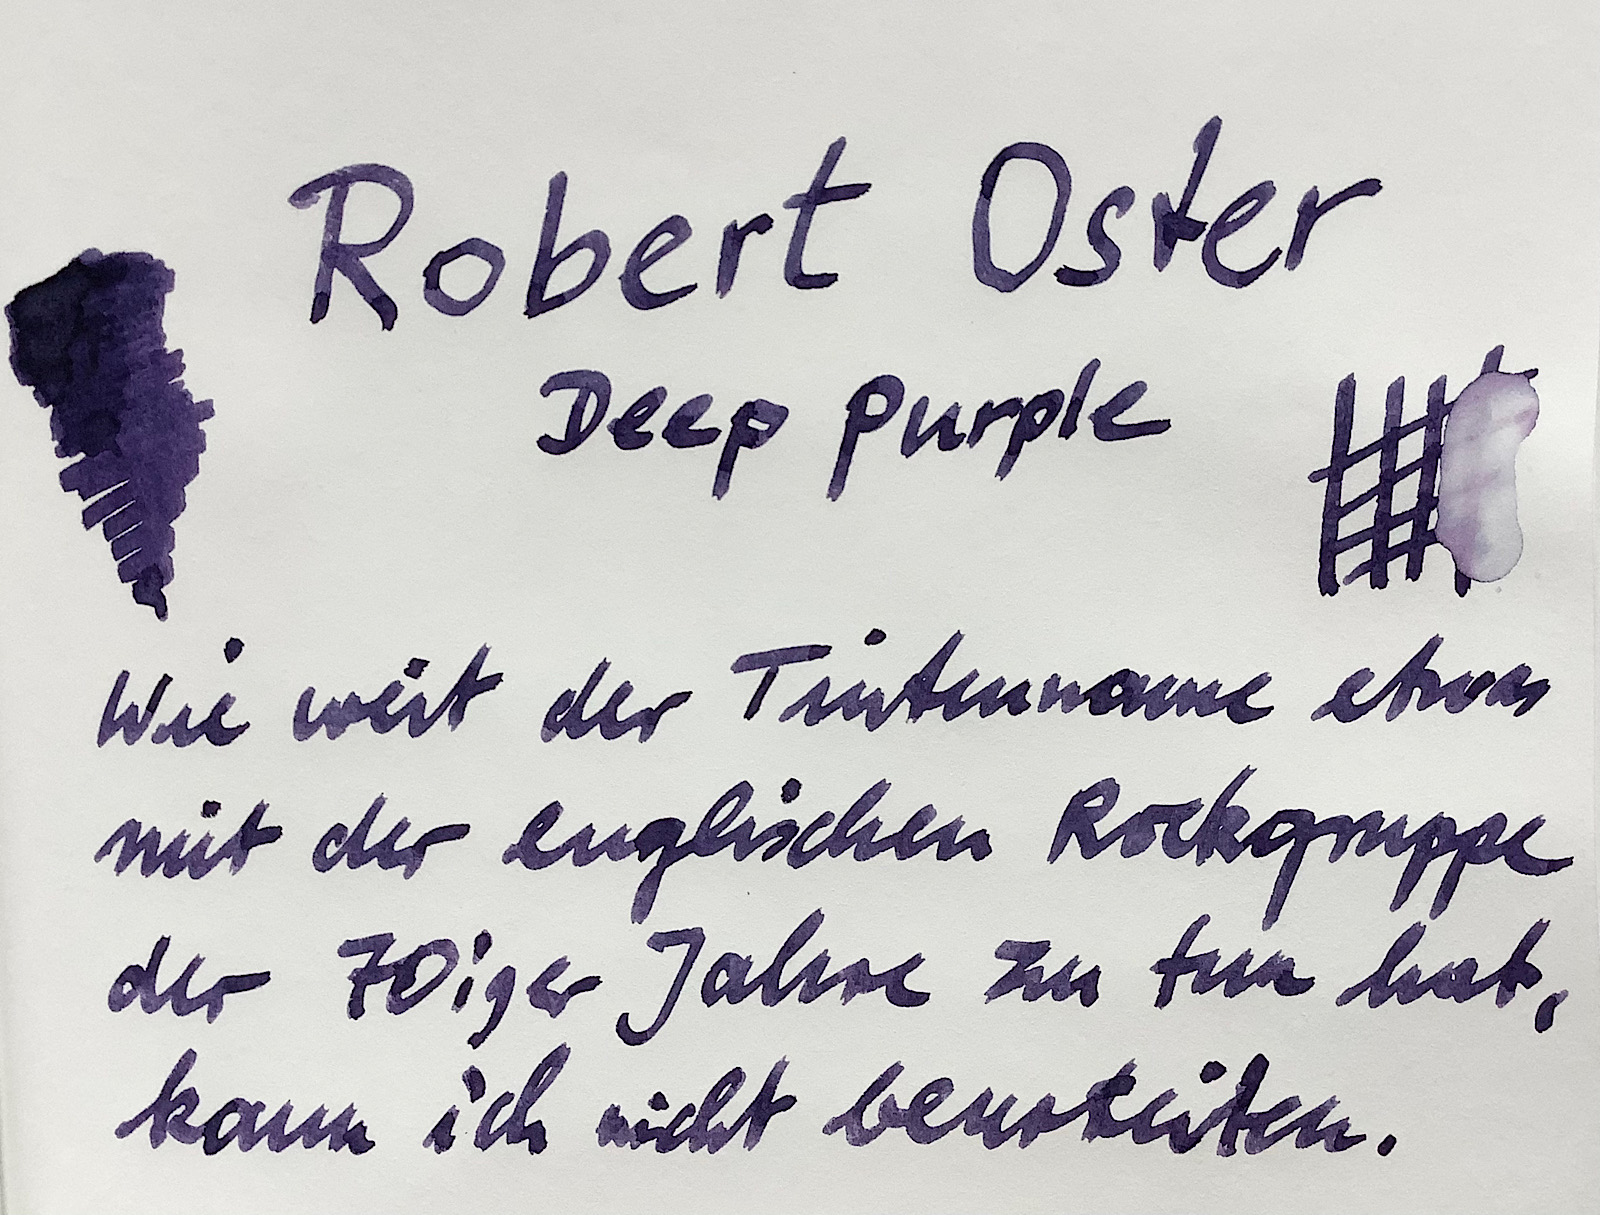 Robert Oster
Deep purple
Wie weit der Tintenname etwas
mit der englischen Rockgruppe
der 70iger Jahre zu tun hat,
kann ich nicht beurteiten.